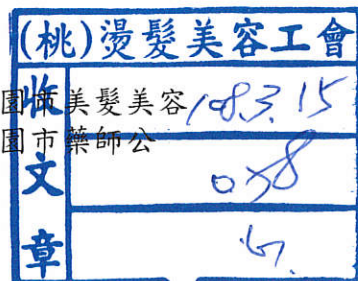 (桃)燙髮美容工會
收文章
園市美髮美容
園市藥師公
108.3.15